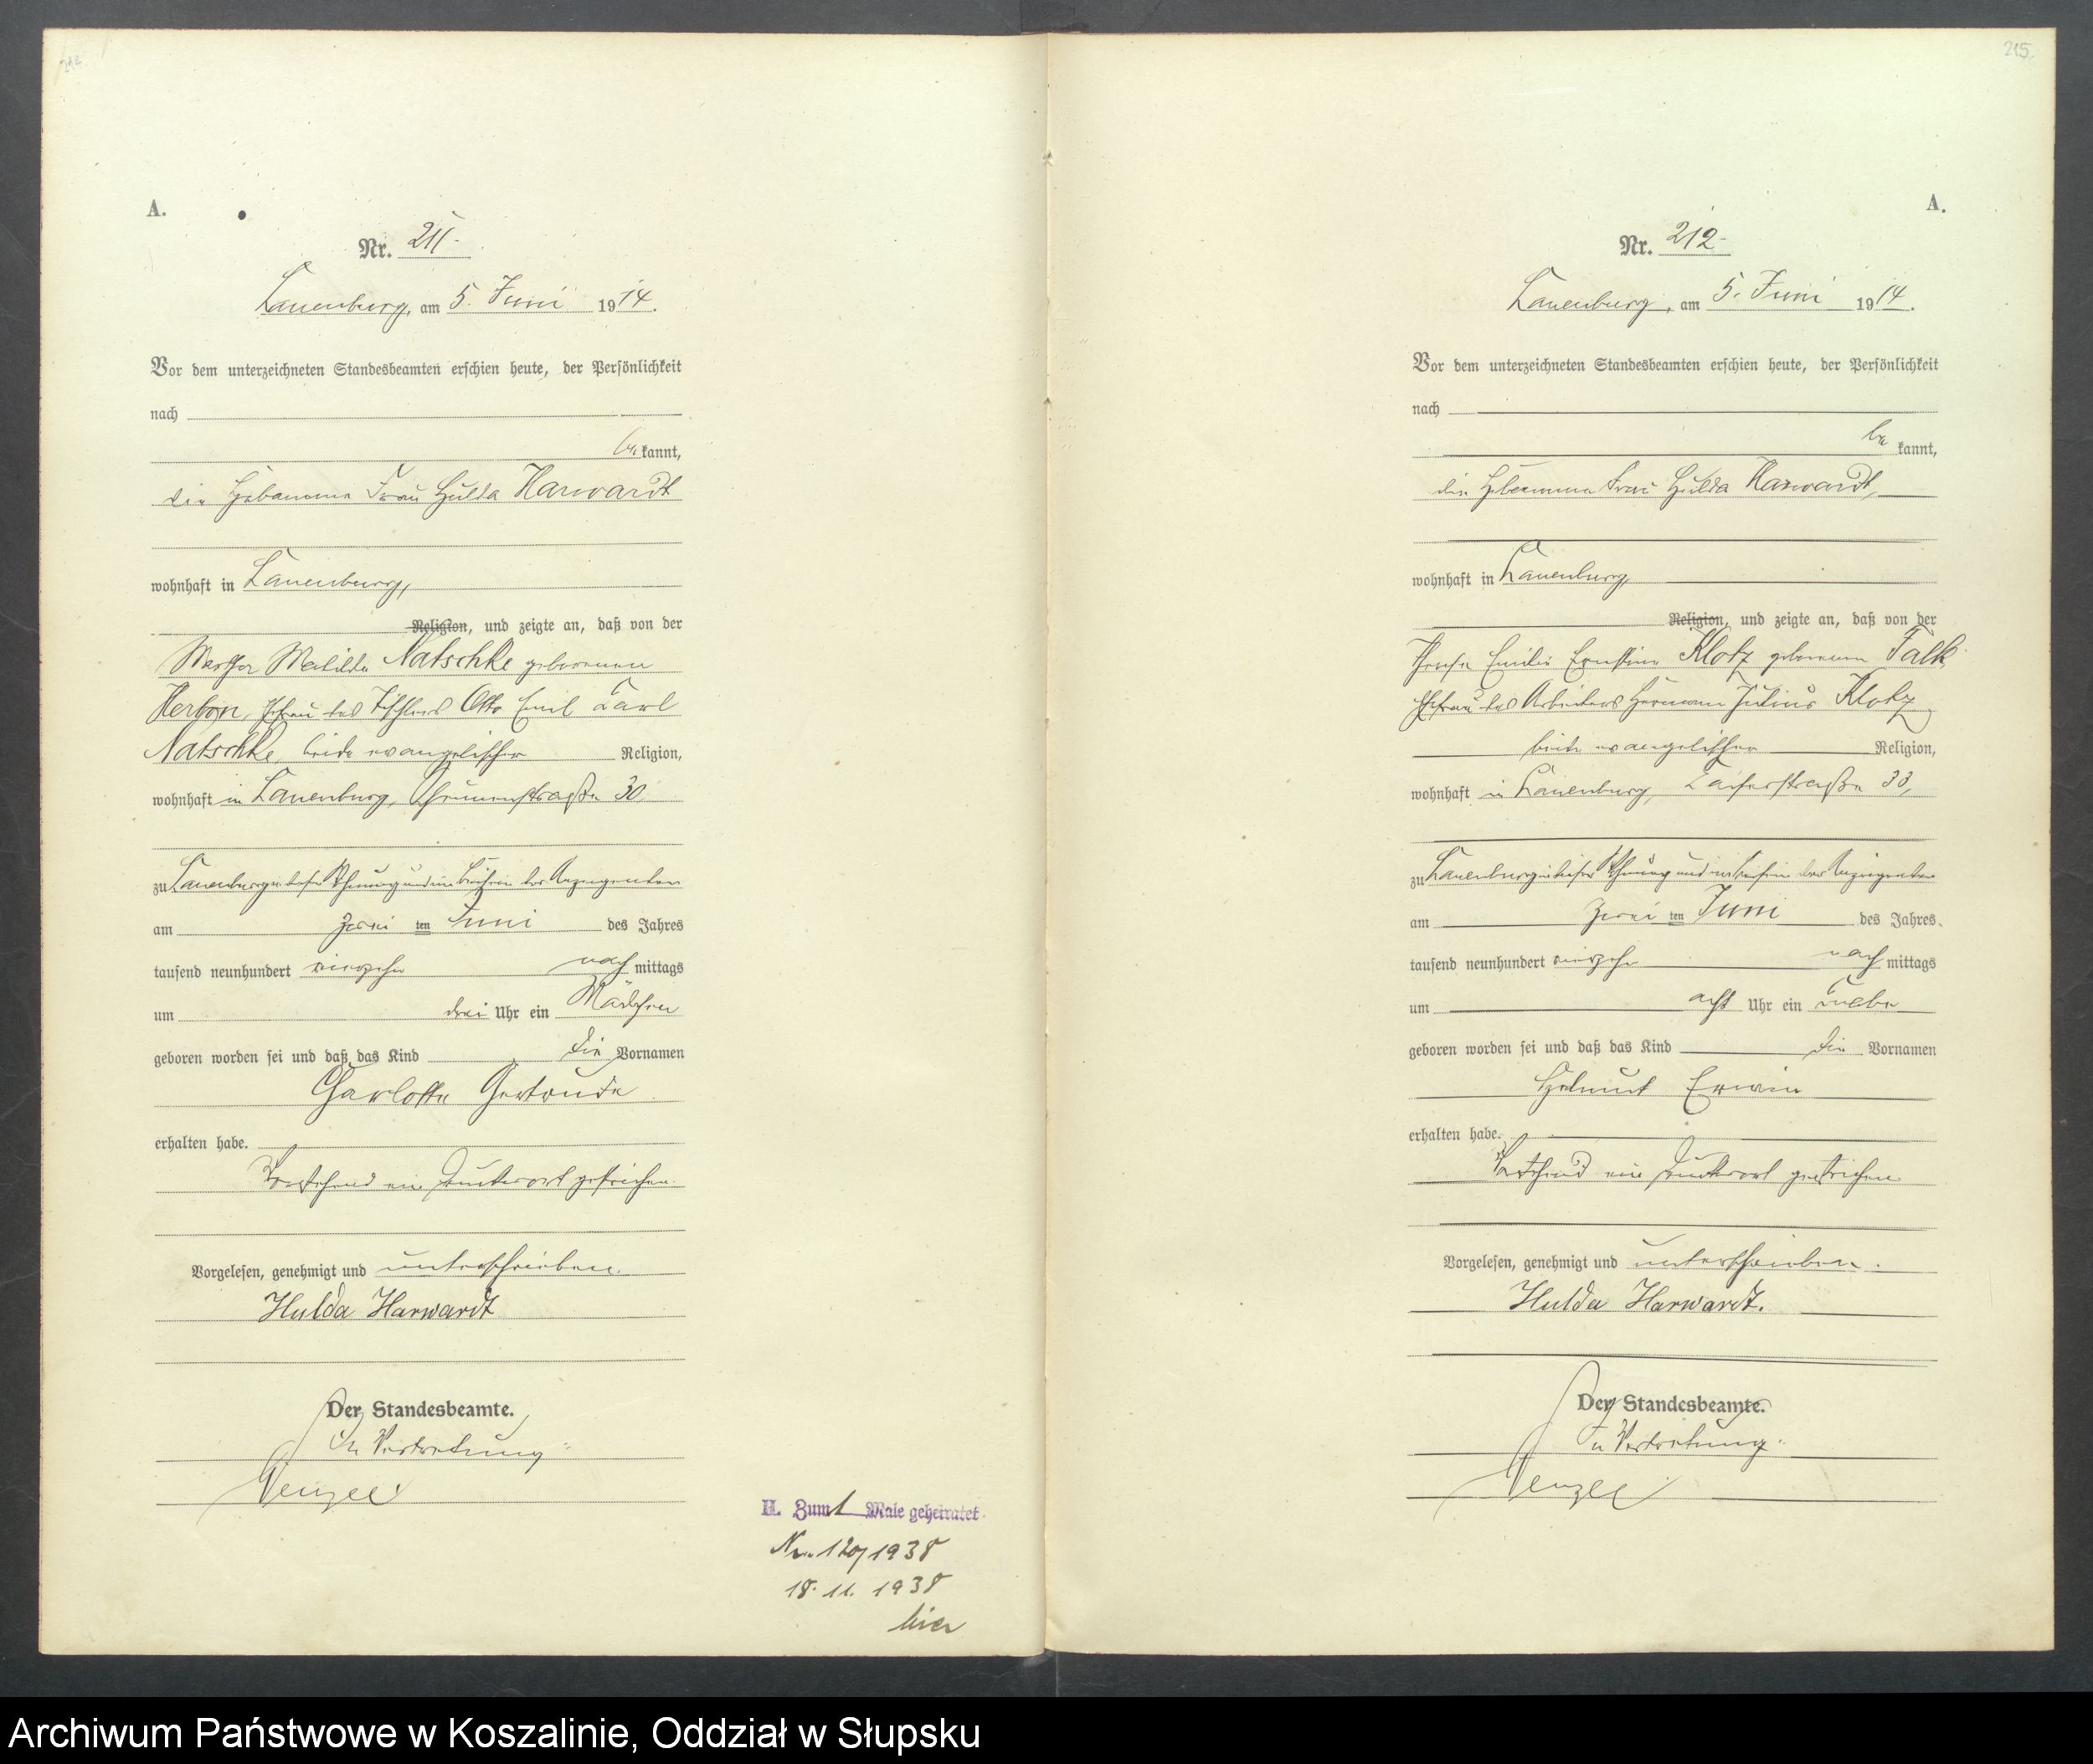 A.
Nr. 211.
Lauenburg, am 5. Juni 1914.
Vor dem unterzeichneten Standesbeamten erschien heute, der Persönlichkeit
nach
be kannt,
die Hebamme Frau Hulda Harwardt
wohnhaft in Lauenburg,
Religion, und zeigte an, daß von der
Martha Matilde Natschke geborenen
Ehefrau des Tischlers Otto Emil Carl
Natschke, beide evangelischer Religion,
wohnhaft in Lauenburg, 30
zu Lauenburg in dieser Wohnung und im Beisein der Anzeigenden
am zwei ten Juni des Jahres
tausend neunhundert vierzehn nach mittags
um drei Uhr ein Mädchen
geboren worden sei und daß das Kind die Vornamen
Charlotte Gertrude
erhalten habe.
Vorstehend ein Druckwort gestrichen.
Vorgelesen, genehmigt und unterschrieben.
Hulda Harwardt
Der Standesbeamte.
In Vertretung:
Wenzel
H. Zum 1 Male geheiratet
Nr. 120/1938
18. 11. 1938
hier
215.
A.
Nr. 212.
Lauenburg, am 5. Juni 1914.
Vor dem unterzeichneten Standesbeamten erschien heute, der Persönlichkeit
nach
be kannt,
die Hebamme Frau Hulda Harwardt,
wohnhaft in Lauenburg,
Religion, und zeigte an, daß von der
Emilie Ernstine Klotz geborenen Falk,
Ehefrau des Arbeiters Hermann Julius Klotz
beide evangelischer Religion,
wohnhaft in Lauenburg, 33,
zu Lauenburg in dieser Wohnung und im Beisein der Anzeigenden
am zwei ten Juni des Jahres
tausend neunhundert vierzehn nach mittags
um acht Uhr ein Knabe
geboren worden sei und daß das Kind die Vornamen
Helmut Erwin
erhalten habe.
Vorstehend ein Druckwort gestrichen
Vorgelesen, genehmigt und unterschrieben.
Hulda Harwardt.
Der Standesbeamte.
In Vertretung:
Wenzel
Archiwum Państwowe w Koszalinie, Oddział w Słupsku